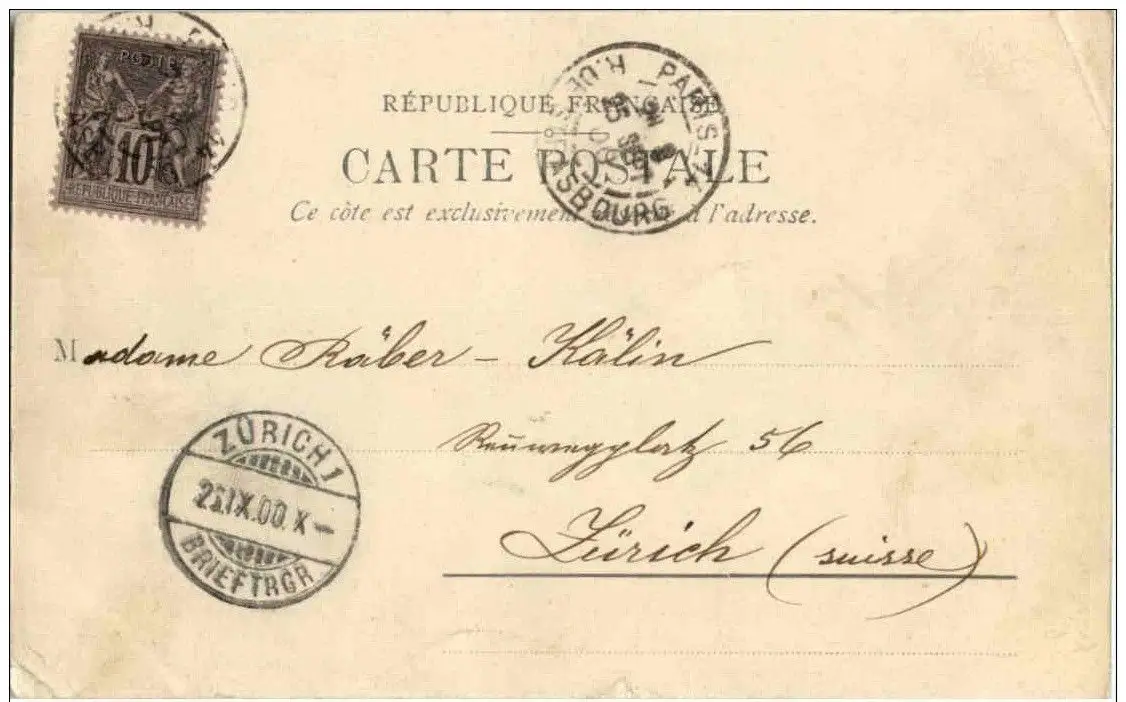 POSTE
10
REPUBLIQUE FRANCAISE
PARIS
R. DE STRASBOURG
RÉPUBLIQUE FRANÇAISE
CARTE POSTALE
Ce côte est exclusivement à l'adresse.
Madame Räber – Kälin
Rennwegplatz 56
Zürich (suisse)
ZÜRICH 1
IX.00. X–
BRIEFTRGR